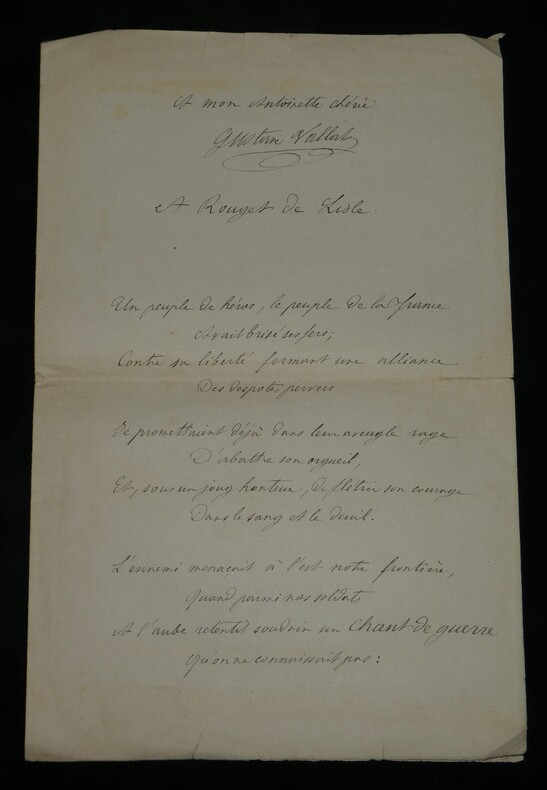 A mon Antoinette chérie
Gustave
A Rouget de Lisle.
Un peuple de héros, le peuple de la France
Avait brisé ses fers;
Contre sa liberté formant une alliance
Des despotes pervers
Se promettaient déjà dans leur aveugle rage
D'abattre son orgueil,
Et, sous un joug honteux, de flétrir son courage
Dans le sang et le deuil.
L'ennemi menaçait à l'est notre frontière,
Quand parmi nos soldats
A l'aube retentit soudain un Chant de guerre
Qu'on ne connaissait pas: